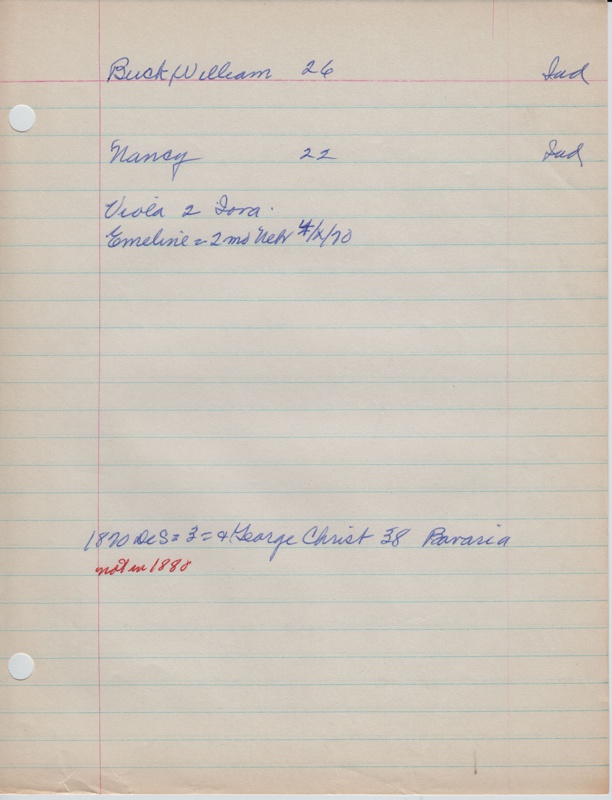 Buck, William 26 Ind
Nancy 22 Ind
Viola 2 Iowa.
Emeline = 2 mo Nebr 4/x/70
1870 DeS = 3 = & George Christ 38 Bavaria
not in 1880